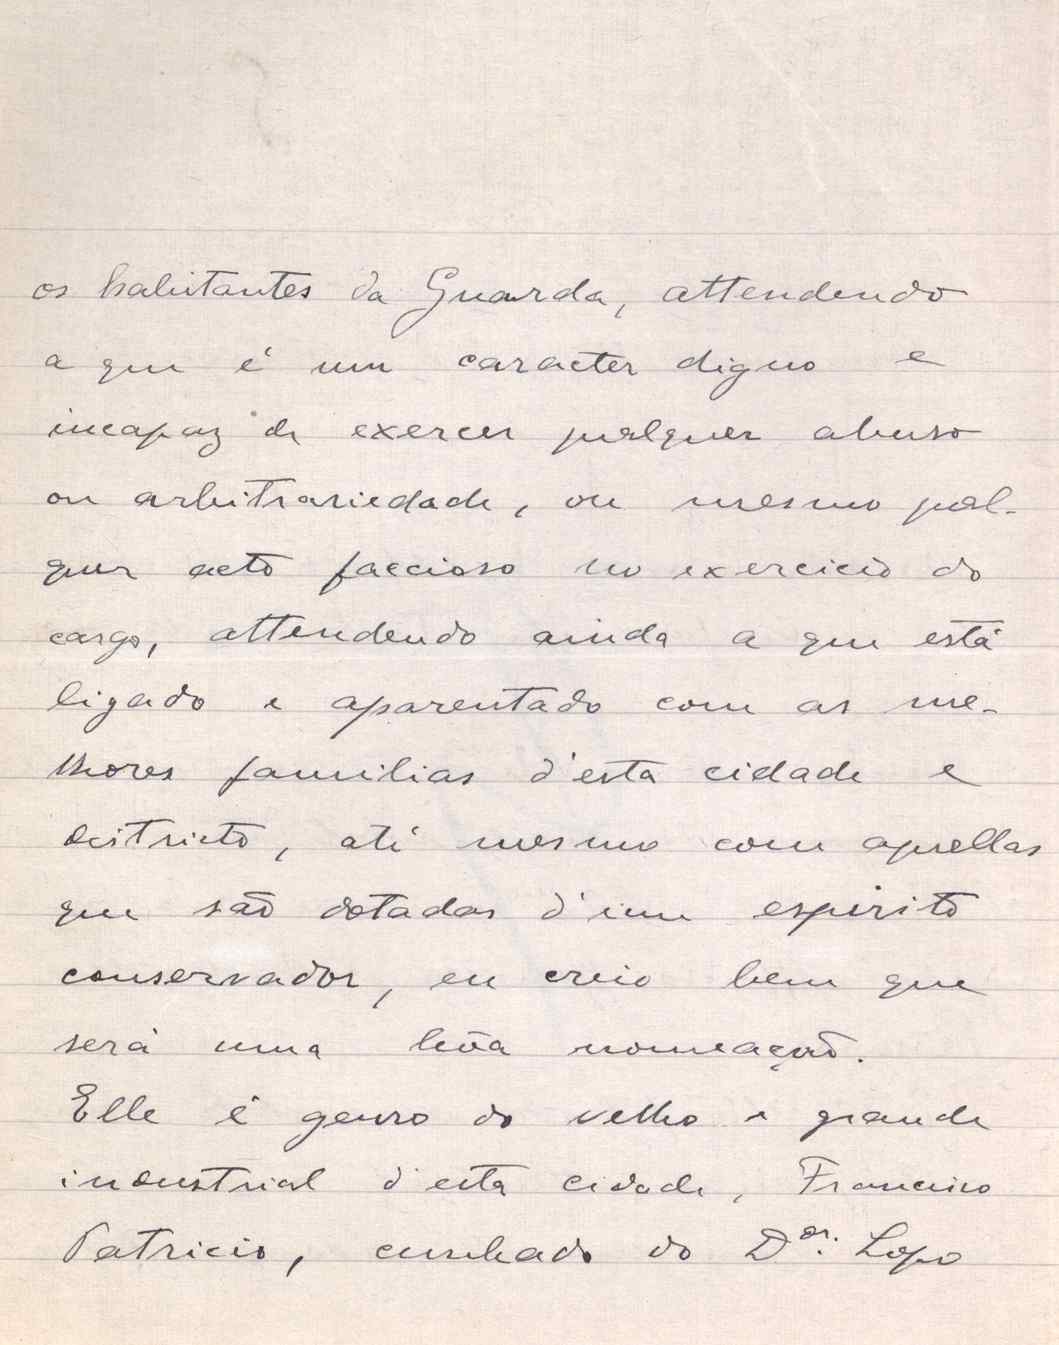 os habitantes da Guarda, attendendo
a que é um caracter digno e
incapaz de exercer qualquer abuso
ou arbitrariedade, ou mesmo qual-
quer acto faccioso no exercicio do
cargo, attendendo ainda a que está
ligado e aparentado com as me-
lhores familias d'esta cidade e
districto, até mesmo com aquellas
que são dotadas d'um espirito
conservador, eu creio bem que
será uma bôa nomeação.
Elle é genro do velho e grande
industrial d'esta cidade, Francisco
Patricio, cunhado do Dor. Lopo